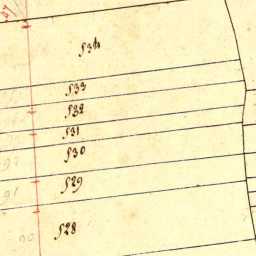 534
533
532
531
530
529
528